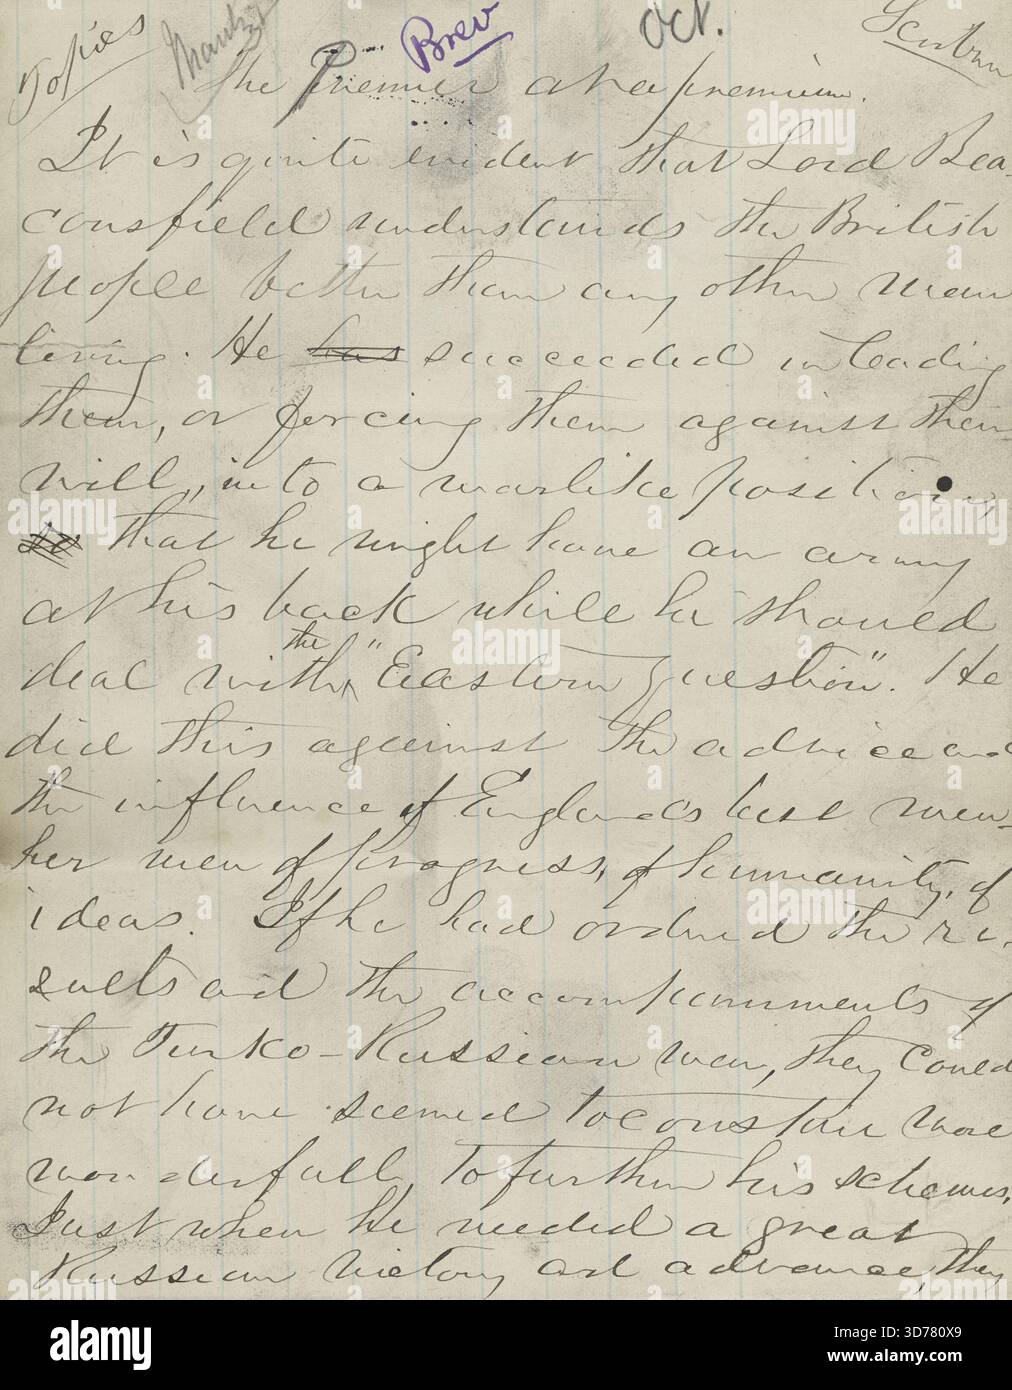 Topics Brev Oct. Scribner
The Premier at a premium.
It is quite evident that Lord Bea-
consfield understands the British
people better than any other man
living. He has succeeded in leading
them, or forcing them against their
will, into a warlike position,
so that he might have an army
at his back while he should
deal with the "Eastern Question". He
did this against the advice and
the influence of England's best men—
her men of progress, of humanity, of
ideas. If he had ordered the re-
sults and the accompaniments of
the Turko-Russian war, they could
not have seemed to conspire more
wonderfully to further his schemes.
Just when he needed a great
Russian victory and advance, they
alamy
Image ID: 3D780X9
www.alamy.com